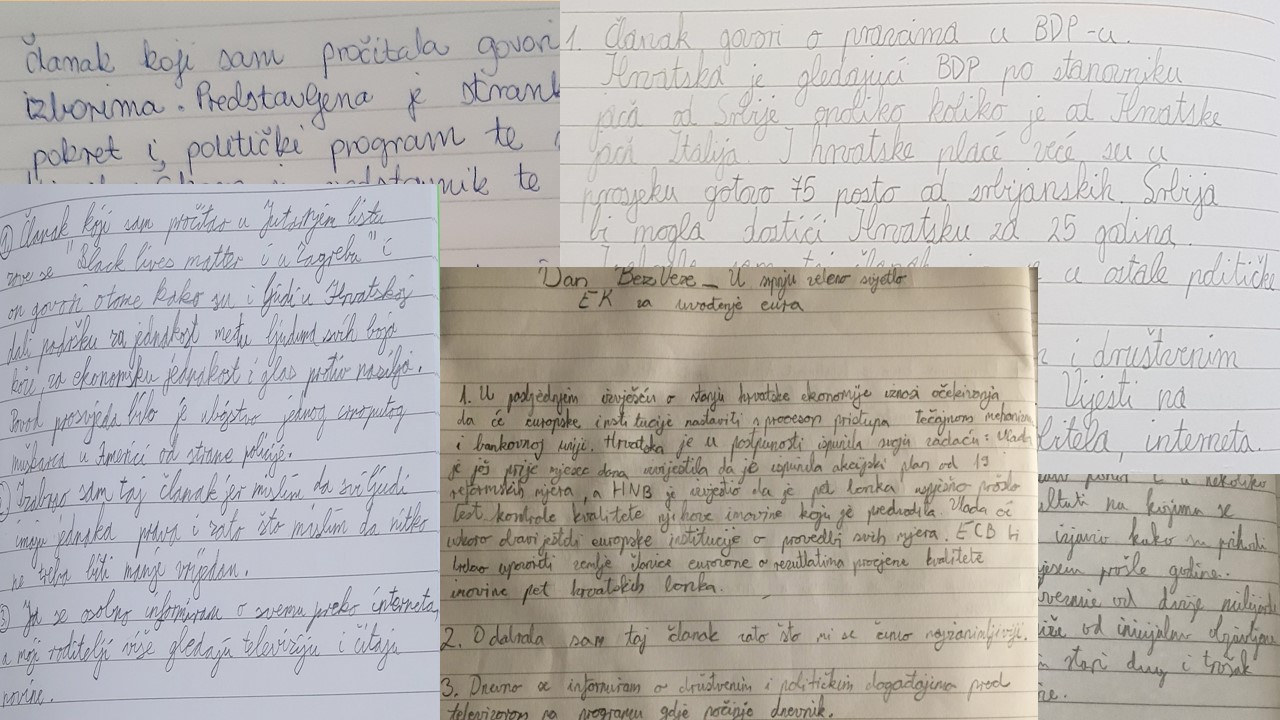 Članak koji sam pročitala govori
izborima. Predstavljena je strank
pokret i, politički program te
predstavnik te
1. Članak govori o prazima u BDP-u.
Hrvatska je gledajući BDP po stanovniku
jača od Srbije onoliko koliko je od Hrvatske
jača Italija. I hrvatske plaće veće su u
prosjeku gotovo 75 posto od srbijanskih. Srbija
bi mogla dostići Hrvatsku za 25 godina.
sam taj članak u ostale političke
i društvenim
Vijesti na
interneta.
1) Članak koji sam pročitao u Jutarnjem listu
zove se "Black lives matter i u Zagrebu" i
on govori otome kako su i ljudi u Hrvatskoj
dali podršku za jednakost među ljudima svih boja
kože, za ekonomsku jednakost i glas protiv nasilja.
Povod prosvjeda bilo je ubojstvo jednog crnoputog
muškarca u Americi od strane policije.
2) Izabrao sam taj članak jer mislim da svi ljudi
imaju jednaka prava i zato što mislim da nitko
ne treba biti manje vrijedan.
3) Ja se osobno informiram o svemu preko interneta,
a moji roditelji više gledaju televiziju i čitaju
novine.
Dan BezVeze _ U srpnju zeleno svijetlo
EK za uvođenje eura
1. U posljednjem izvješću o stanju hrvatske ekonomije iznosi očekivanja
da će europske institucije nastaviti s procesom pristupa tečajnom mehanizmu
i bankovnoj uniji. Hrvatska je u potpunosti ispunila svoju zadaću: Vlada
je još prije mjesec dana izvijestila da je ispunila akcijski plan od 19
reformskih mjera, a HNB je izvijestio da je pet banka uspješno prošlo
test kontrole kvalitete njihove imovine koju je predvodila. Vlada će
uskoro obavijestiti europske institucije o provedbi svih mjera. ECB bi
trebao uporediti zemlje članice eurozone o rezultatima procjene kvalitete
imovine pet hrvatskih banka.
2. Odabrala sam taj članak zato što mi se činio najzanimljiviji.
3. Dnevno se informiram o društvenim i političkim događajima pred
televizorom na programu gdje počinje dnevnik.
i u nekoliko
na kojima se
izjavio kako su prihodi
prošle godine.
od dvije milijarde
od inicijalno
stari dug i trošak